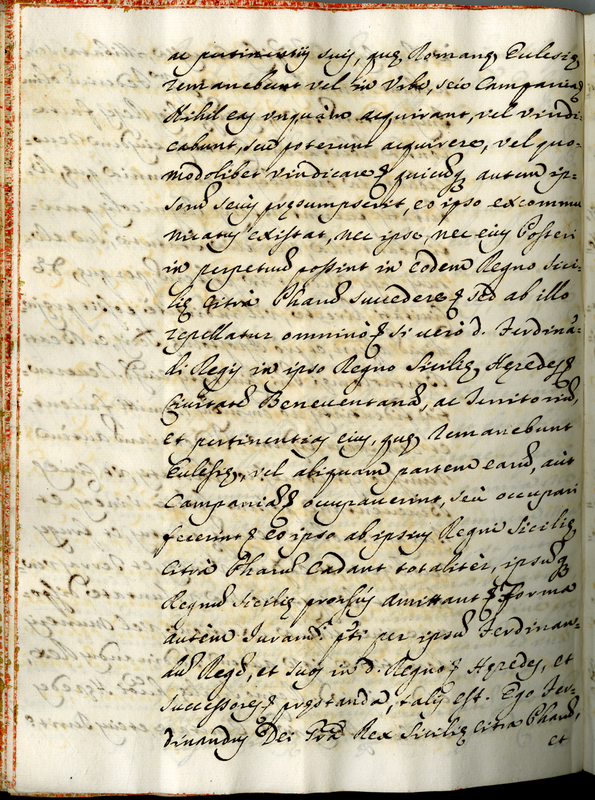 ac pertinentijs suis, quę Romanę Eulesię
remanebunt vel in Vrbe, seù Campania
Nihil eas vnquàm acquirant, vel vindi-
cabunt, seù poterunt acquirere, vel quo-
modolibet vindicare, quicūq autem ip-
sorū secùs pręsumpserit, eo ipso excommu
nicatus existat, nec ipse, nec eius Posteri
in perpetuū possint in eodem Regno Sici-
lię Citrà Pharū succedere, sed ab illo
repellatur omninò, si verò d. Ferdinā-
di Regis in ipso Regno Sicilię Hęredes
Ciuitatē Beneuentanā, ac Territoriū,
et pertinentias eius, quę remanebunt
Eulesię, vel aliquam partem earū, aùt
Campania occupauerint, seù occupari
fecerint, eo ipso ab ipsius Regni Sicilię
Citrà Pharū cadant totalitèr, ipsūq
Regnū Sicilię prorsùs amittant, Forma
autèm Juramⁱ. pⁱⁱ per ipsū Ferdinan-
dū Regē, et suos in d. Regno Hęredes, et
successores pręstanda, talis est. Ego Fer-
dinandus Dei Grā Rex Sicilię citra Pharū,
et